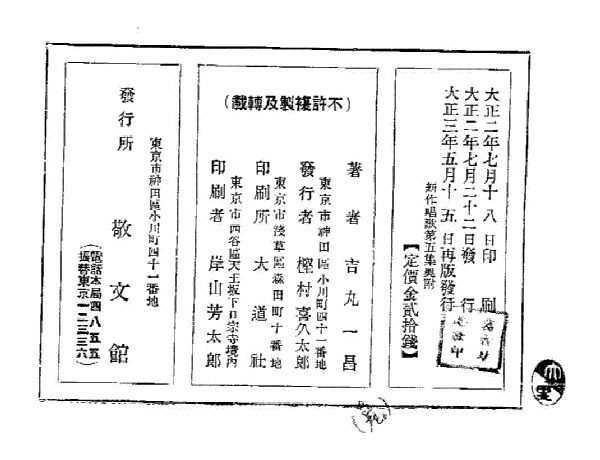 大正二年七月十八日印刷
大正二年七月二十二日發行
大正三年五月十五日再版發行
新作唱歌第五集奧附
【定價金貳拾錢】
(不許複製及轉載)
著者 吉丸一昌
東京市神田區小川町四十一番地
發行者 樫村喜久太郎
東京市淺草區森田町十番地
印刷所 大道社
東京市四谷區天王坂下日宗寺境内
印刷者 岸山芳太郎
東京市神田區小川町四十一番地
發行所 敬文館
(電話本局四八五五
振替東京一二三三六)